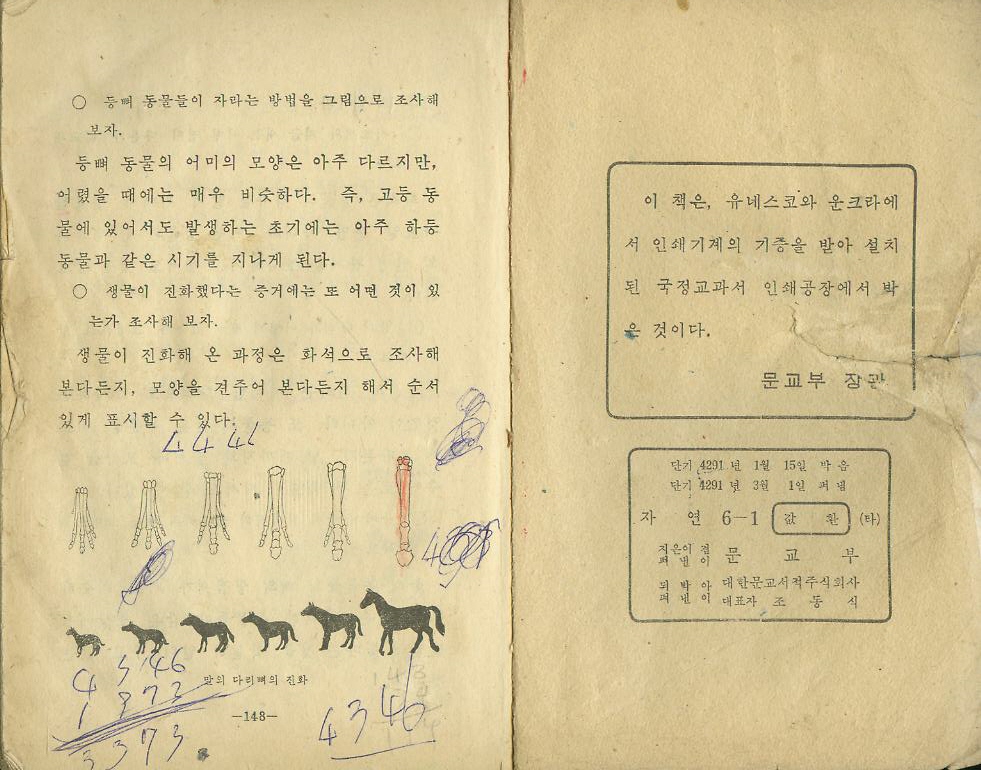 ○ 등뼈 동물들이 자라는 방법을 그림으로 조사해
보자.
등뼈 동물의 어미의 모양은 아주 다르지만,
어렸을 때에는 매우 비슷하다. 즉, 고등 동
물에 있어서도 발생하는 초기에는 아주 하등
동물과 같은 시기를 지나게 된다.
○ 생물이 진화했다는 증거에는 또 어떤 것이 있
는가 조사해 보자.
생물이 진화해 온 과정은 화석으로 조사해
본다든지, 모양을 견주어 본다든지 해서 순서
있게 표시할 수 있다.
말의 다리뼈의 진화
—148—
4346
373
이 책은, 유네스코와 운크라에
서 인쇄기계의 기증을 받아 설치
된 국정교과서 인쇄공장에서 박
은 것이다.
문교부 장관
단기 4291년 1월 15일 박음
단기 4291년 3월 1일 펴냄
자 연 6—1 값 환 (타)
지은이 겸
펴낸이 문 교 부
되박아
펴낸이 대한문교서적주식회사
대표자 조 동 식